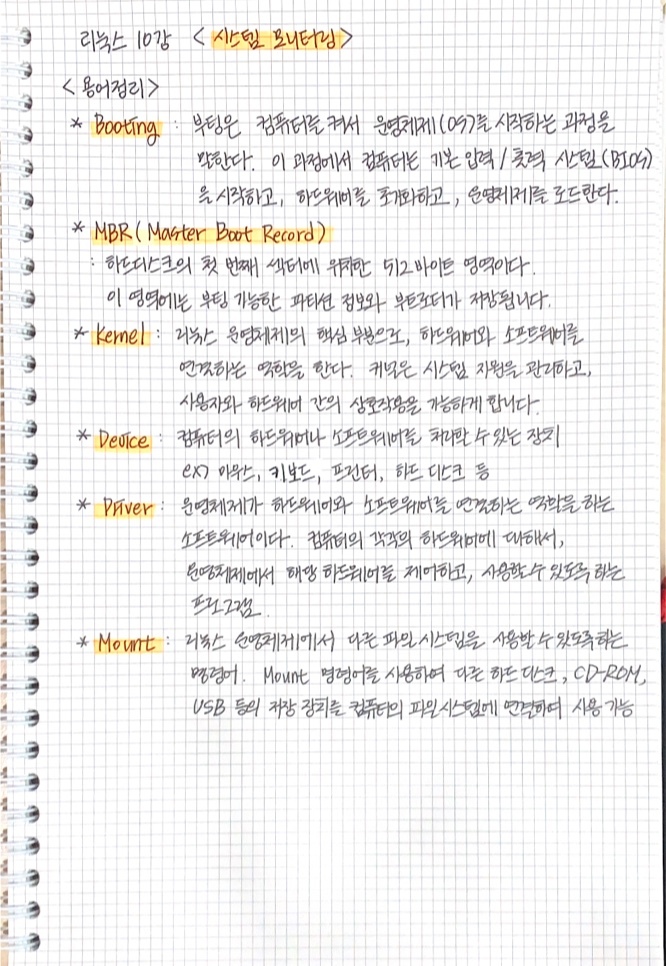 리눅스 10강 <시스템 모니터링>
<용어정리>
* Booting : 부팅은 컴퓨터를 켜서 운영체제(OS)를 시작하는 과정을
말한다. 이 과정에서 컴퓨터는 기본 입력/출력 시스템(BIOS)
을 시작하고, 하드웨어를 초기화하고, 운영체제를 로드한다.
* MBR(Master Boot Record)
: 하드디스크의 첫 번째 섹터에 위치한 512바이트 영역이다.
이 영역에는 부팅 가능한 파티션 정보와 부트로더가 저장됩니다.
* Kernel : 리눅스 운영체제의 핵심 부분으로, 하드웨어와 소프트웨어를
연결하는 역할을 한다. 커널은 시스템 자원을 관리하고,
사용자와 하드웨어 간의 상호작용을 가능하게 합니다.
* Device : 컴퓨터의 하드웨어나 소프트웨어를 처리할 수 있는 장치
ex) 마우스, 키보드, 프린터, 하드 디스크 등
* Driver : 운영체제가 하드웨어와 소프트웨어를 연결하는 역할을 하는
소프트웨어이다. 컴퓨터의 각각의 하드웨어에 대해서,
운영체제에서 해당 하드웨어를 제어하고, 사용할 수 있도록 하는
프로그램.
* Mount : 리눅스 운영체제에서 다른 파일 시스템을 사용할 수 있도록 하는
명령어. Mount 명령어를 사용하여 다른 하드 디스크, CD-ROM,
USB 등의 저장 장치를 컴퓨터의 파일시스템에 연결하여 사용 가능